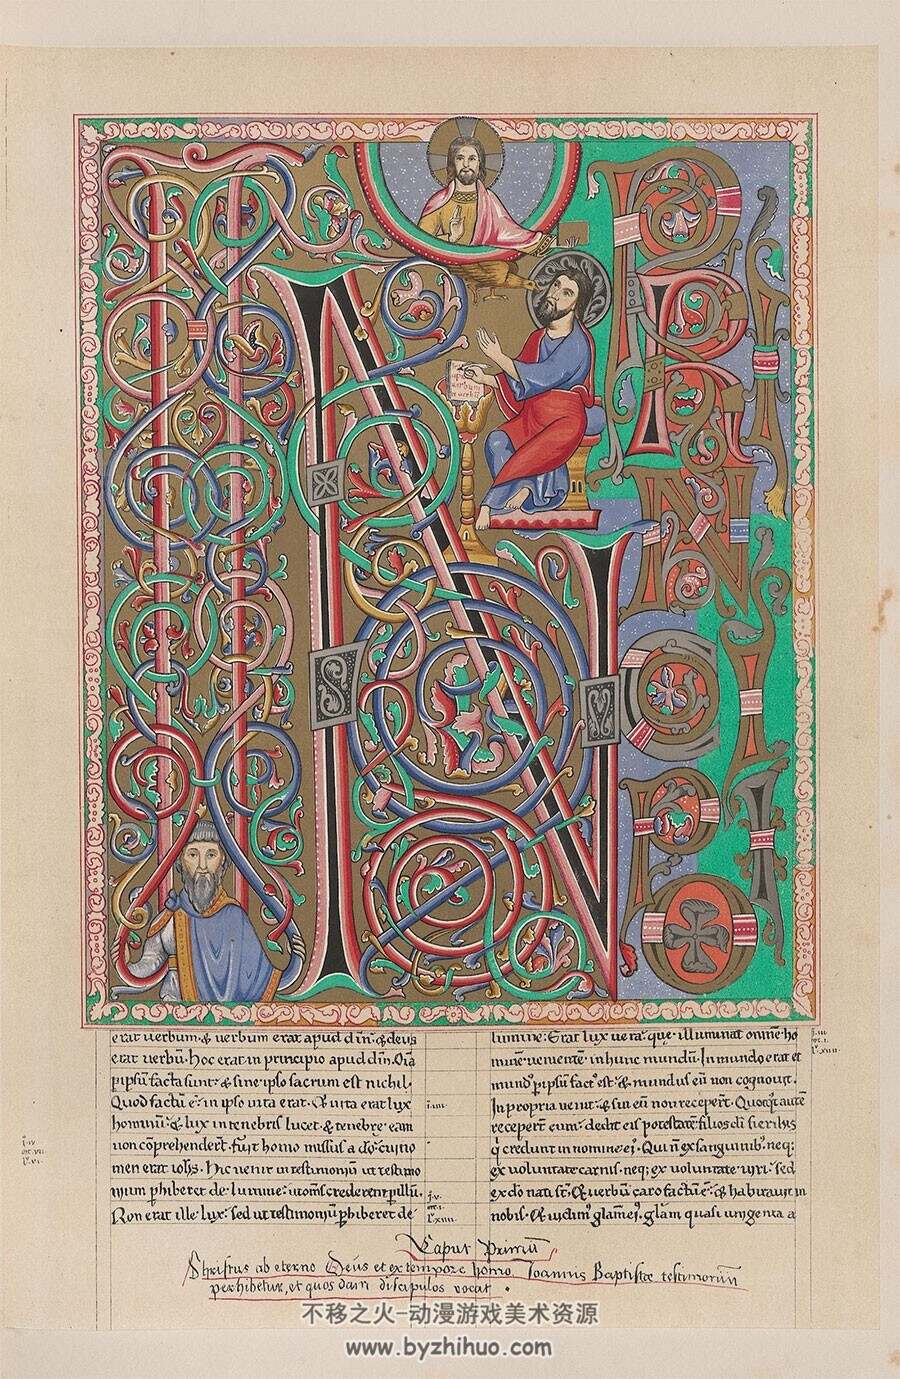 IN PRINCIPIO
erat uerbum· & uerbum erat apud dm̄· & deus
erat uerbū· Hoc erat in principio apud dm̄· Oīa
p ipsū facta sunt· & sine ipso factum est nichil·
Quod factū ē· in ipso uita erat· & uita erat lux
hominū· & lux in tenebris lucet· & tenebre eam
non cōprehendert̄· fuit homo missus a do· cui no
men erat iohs· Hic uenit in testimoniū ut testimo
nium phiberet de lumine· ut oms crederent p illū·
Non erat ille lux· sed ut testimoniū phiberet de
lumine· Erat lux uera· que illuminat omnē ho
minē uenientē in hunc mundū· In mundo erat et
mund' p ipsū fact' est· & mundus eū non cognouit·
In propria uenit· & sui eū non recepert̄· Quotq't autē
recepert̄ eum· dedit eis potestatē filios di fieri his
q' credunt in nomine ei'· Qui n̄ ex sanguinib' neq;
ex uoluntate carnis· neq; ex uoluntate uiri· sed
ex do nati st̄· & uerbū caro factū ē· & habitauit in
nobis· & uidim' glām ei'· glām quasi unigenita a
Caput Primū
Christus ab eterno Deus et ex tempore homo Ioannis Baptistæ testimoniū
perhibetur, et quosdam discipulos vocat·
不移之火-动漫游戏美术资源
www.byzhihuo.com